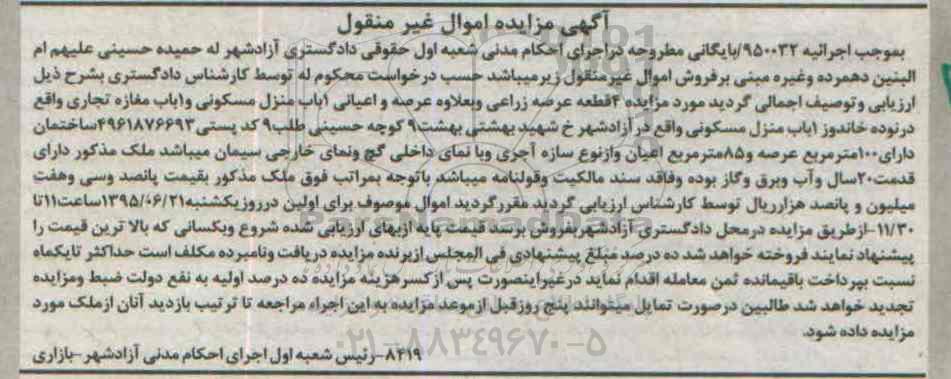 آگهی مزایده اموال غیر منقول
بموجب اجرائیه ۹۵۰۰۳۲/بایگانی مطروحه دراجرای احکام مدنی شعبه اول حقوقی دادگستری آزادشهر له حمیده حسینی علیهم ام
البنین دهمرده وغیره مبنی برفروش اموال غیرمنقول زیرمیباشد حسب درخواست محکوم له توسط کارشناس دادگستری بشرح ذیل
ارزیابی وتوصیف اجمالی گردید مورد مزایده ۴قطعه عرصه زراعی وبعلاوه عرصه و اعیانی ۱باب منزل مسکونی و۱باب مغازه تجاری واقع
درنوده خاندوز ۱باب منزل مسکونی واقع در آزادشهر خ شهید بهشتی بهشت۹ کوچه حسینی طلب۹ کد پستی۴۹۶۱۸۷۶۶۹۳ساختمان
دارای۱۰۰مترمربع عرصه و۸۵مترمربع اعیان وازنوع سازه آجری وبا نمای داخلی گچ ونمای خارجی سیمان میباشد ملک مذکور دارای
قدمت۲۰سال وآب وبرق وگاز بوده وفاقد سند مالکیت وقولنامه میباشد باتوجه بمراتب فوق ملک مذکور بقیمت پانصد وسی وهفت
میلیون و پانصد هزارریال توسط کارشناس ارزیابی گردید مقررگردید اموال موصوف برای اولین درروزیکشنبه۱۳۹۵/۰۶/۲۱ساعت۱۱تا
۱۱/۳۰-ازطریق مزایده درمحل دادگستری آزادشهربفروش برسد قیمت پایه ازبهای ارزیابی شده شروع ویکسانی که بالا ترین قیمت را
پیشنهاد نمایند فروخته خواهد شد ده درصد مبلغ پیشنهادی فی المجلس ازبرنده مزایده دریافت ونامبرده مکلف است حداکثر تایکماه
نسبت بپرداخت باقیمانده ثمن معامله اقدام نماید درغیراینصورت پس ازکسرهزینه مزایده ده درصد اولیه به نفع دولت ضبط ومزایده
تجدید خواهد شد طالبین درصورت تمایل میتوانند پنج روزقبل ازموعد مزایده به این اجراء مراجعه تا ترتیب بازدید آنان ازملک مورد
مزایده داده شود.
۸۴۱۹-رئیس شعبه اول اجرای احکام مدنی آزادشهر-بازاری
ParsNamadData
۰۲۱-۸۸۳۴۹۶۷۰-۵